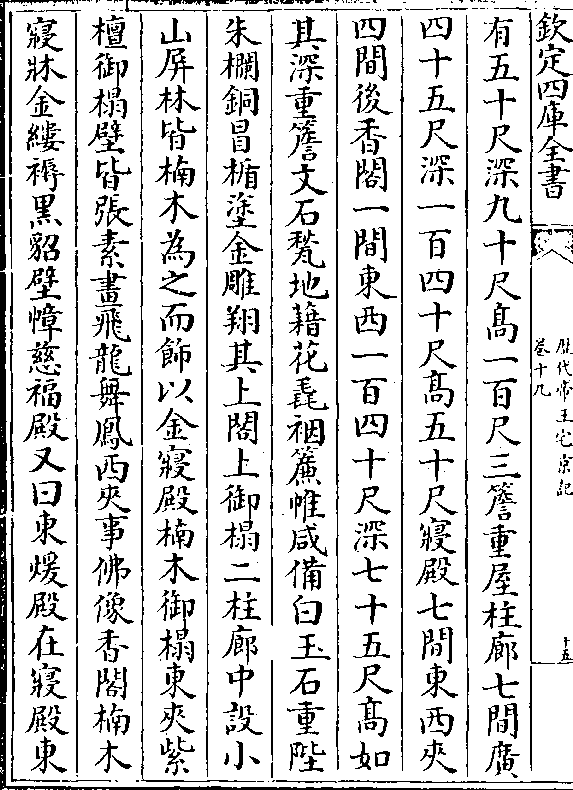 欽定四庫全書
歷代帝王宅京記
卷十九
十五
有五十尺深九十尺髙一百尺三簷重屋柱廊七間廣
四十五尺深一百四十尺髙五十尺寢殿七間東西夾
四間後香閣一間東西一百四十尺深七十五尺髙如
其深重簷文石甃地藉花毳裀簾帷咸備白玉石重陛
朱欄銅冒楯塗金雕翔其上閣上御榻二柱廊中設小
山屏牀皆楠木為之而飾以金寢殿楠木御榻東夾紫
檀御榻壁皆張素畫飛龍舞鳳西夾事佛像香閣楠木
寢牀金縷褥黒貂壁幛慈福殿又曰東煖殿在寢殿東